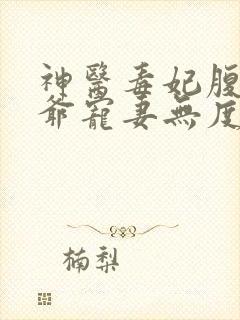 神醫毒妃腹
爺寵妻無度
楠梨